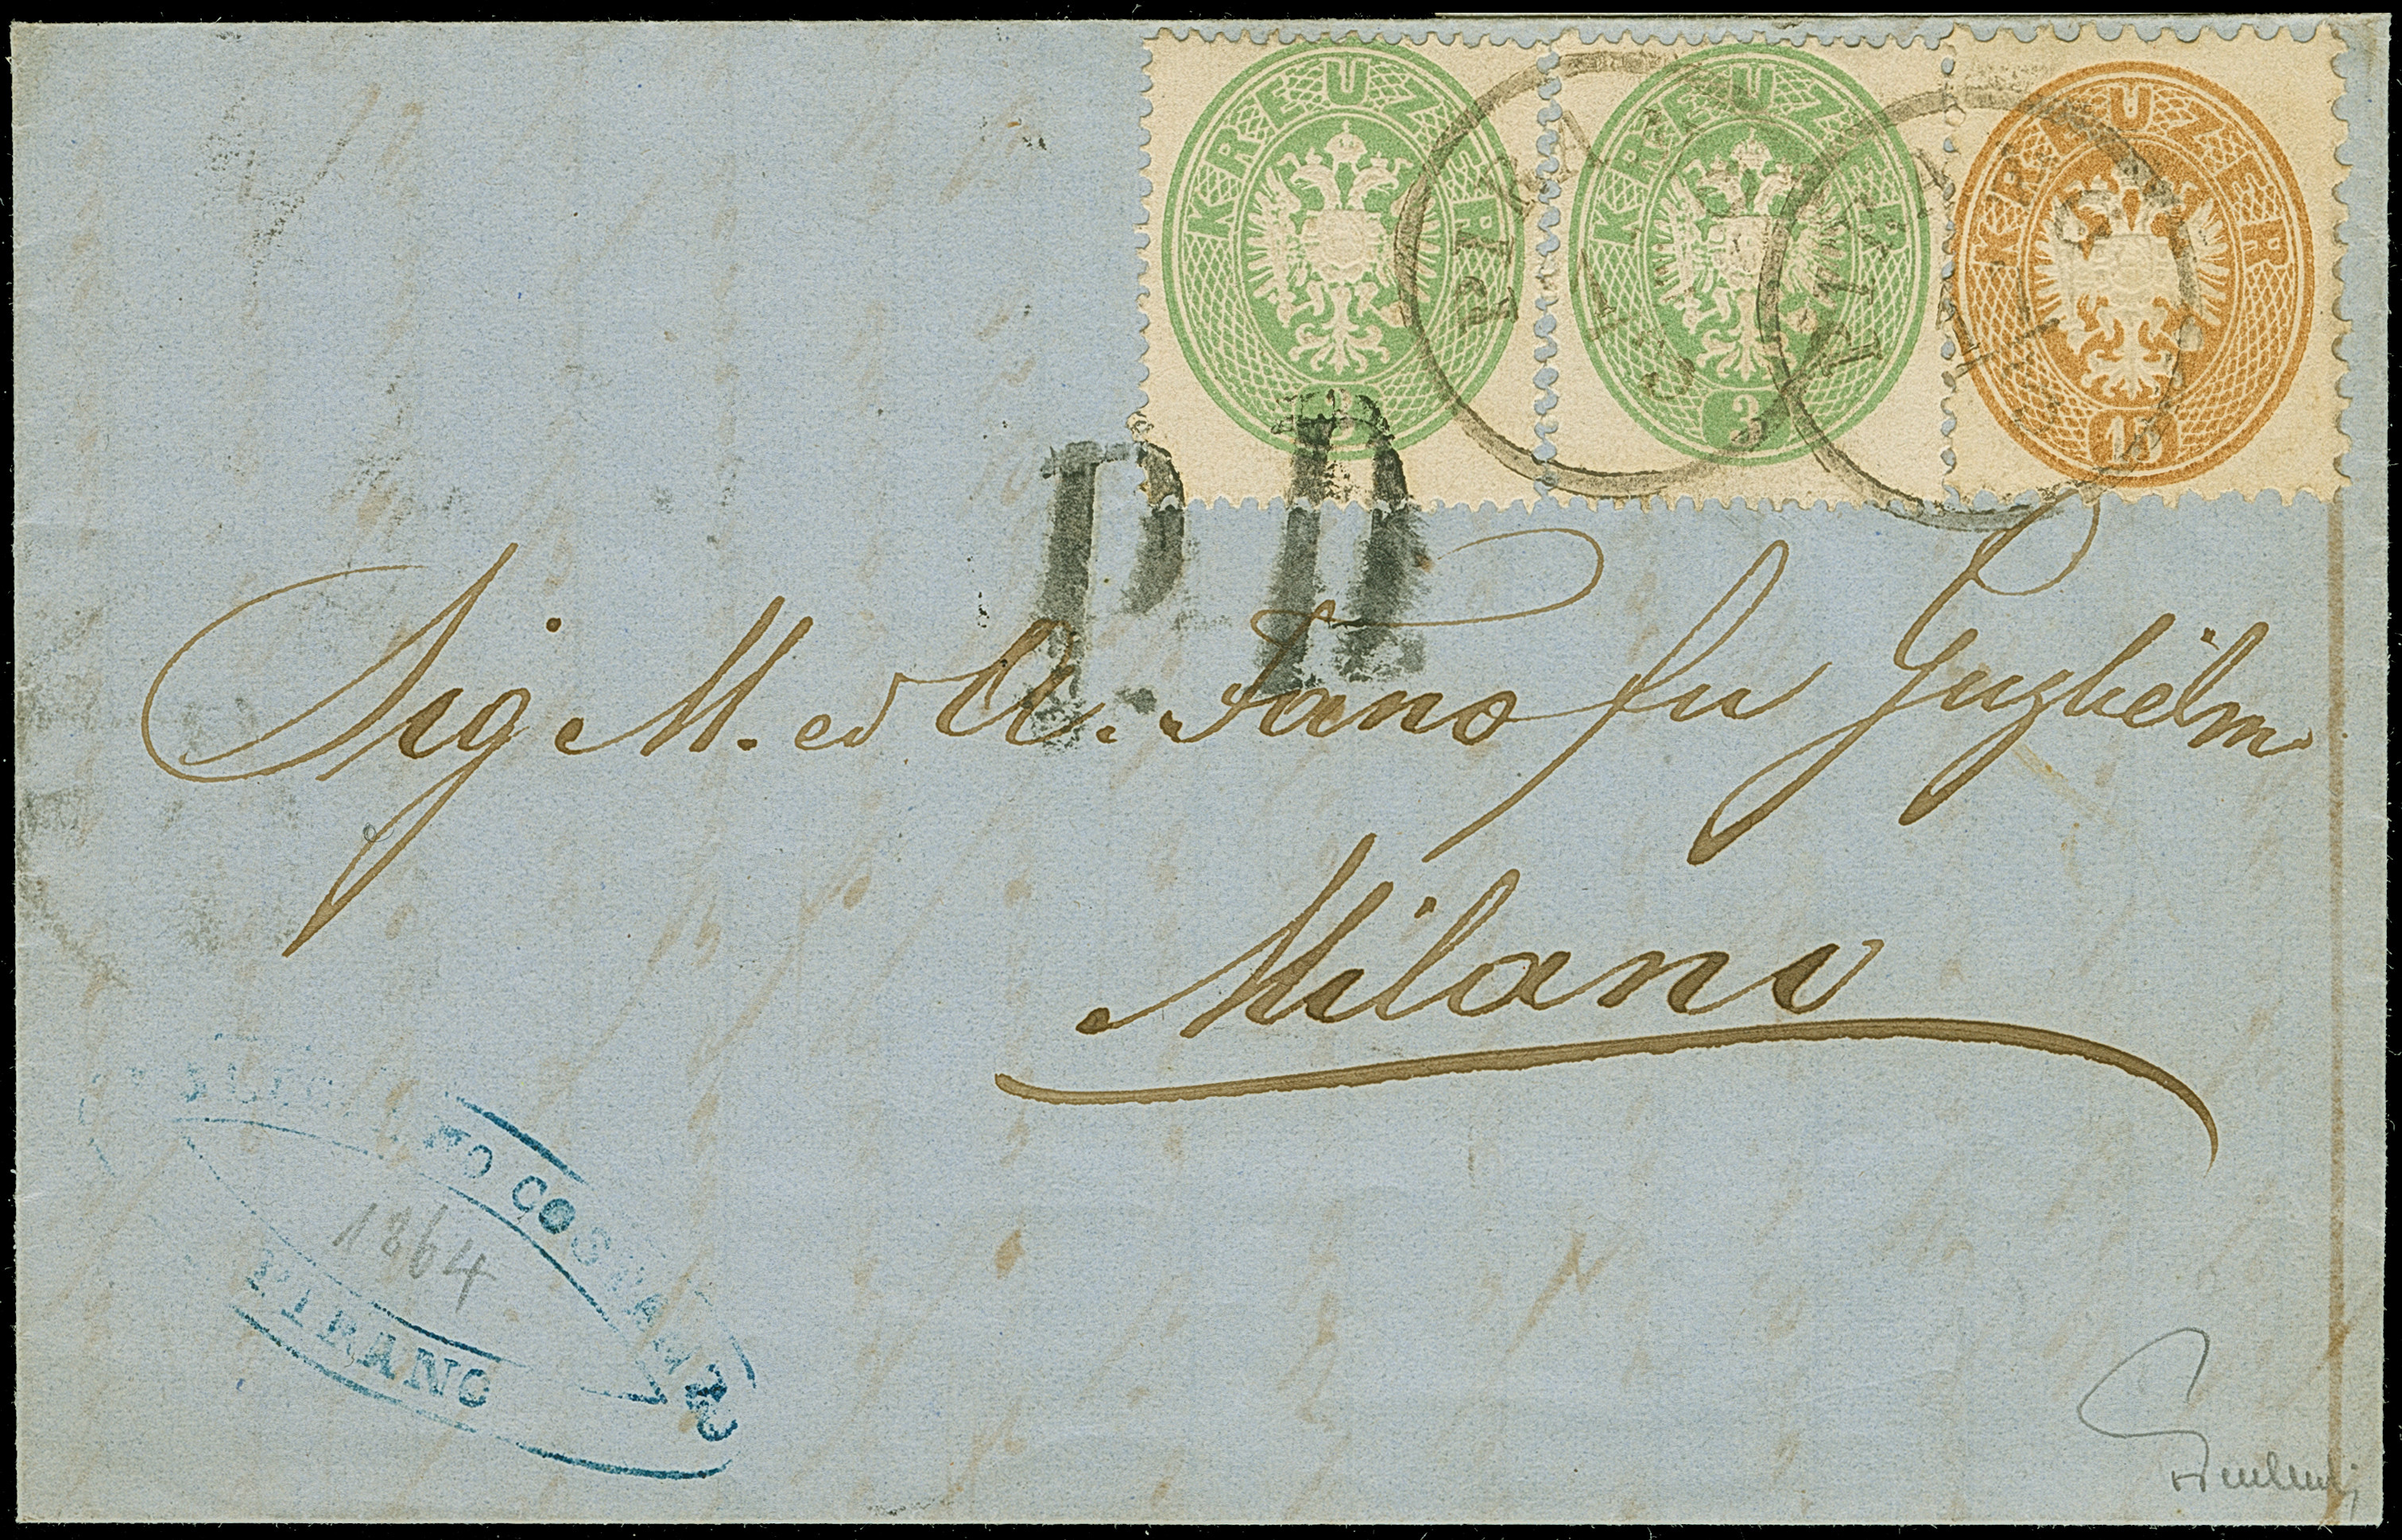 KREUZER 3
KREUZER 3
KREUZER 15
PIRANO
PIRANO
P.D.
Sig M. ed A. Fano fu Guglielm
Milano
COSTANZO
1864
PIRANO